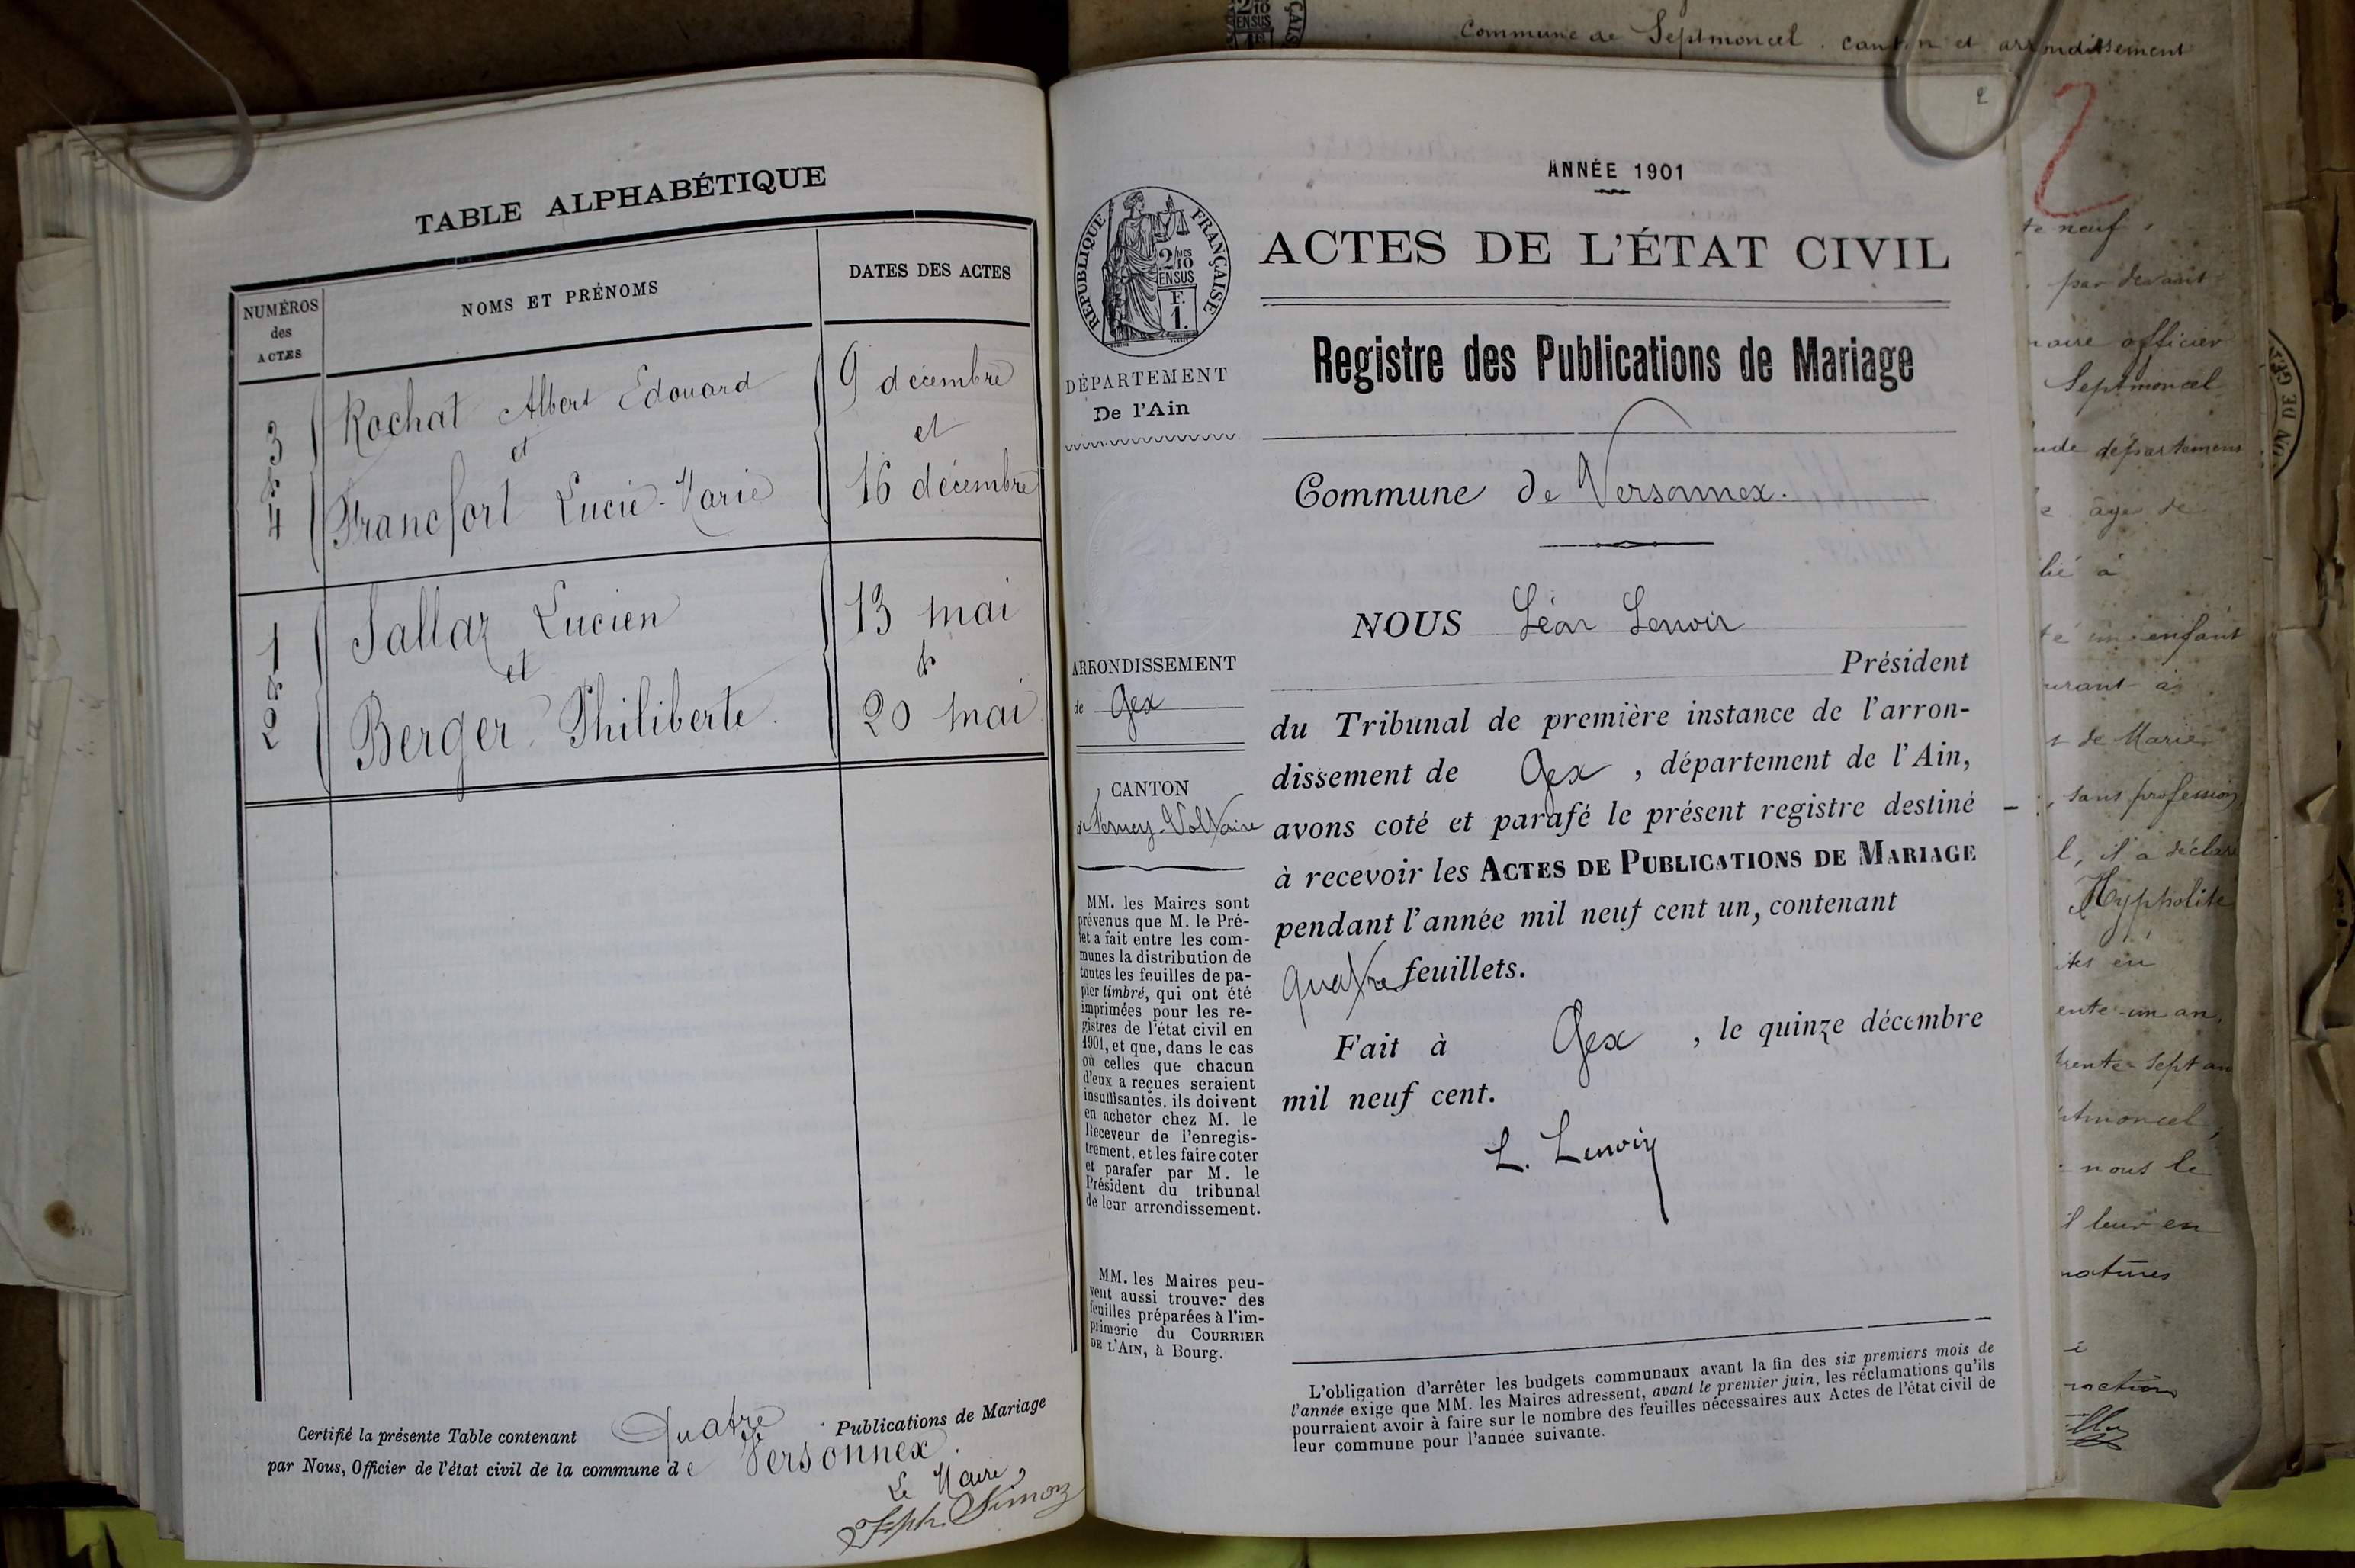 TABLE ALPHABÉTIQUE
NUMÉROS
des
ACTES
NOMS ET PRÉNOMS
DATES DES ACTES
3
et
4
Rochat Albert Edouard
et
Francfort Lucie-Marie
9 décembre
et
16 décembre
1
et
2
Sallaz Lucien
et
Berger Philiberte
13 mai
et
20 mai
Certifié la présente Table contenant Quatre Publications de Mariage
par Nous, Officier de l'état civil de la commune de Versonnex.
Le Maire
Simon
2
ANNÉE 1901
ACTES DE L'ÉTAT CIVIL
Registre des Publications de Mariage
Commune de Versonnex.
NOUS Léon Lenoir
Président
du Tribunal de première instance de l'arron-
dissement de Gex, département de l'Ain,
avons coté et parafé le présent registre destiné
à recevoir les ACTES DE PUBLICATIONS DE MARIAGE
pendant l'année mil neuf cent un, contenant
quatre feuillets.
Fait à Gex, le quinze décembre
mil neuf cent.
L. Lenoir
L'obligation d'arrêter les budgets communaux avant la fin des six premiers mois de
l'année exige que MM. les Maires adressent, avant le premier juin, les réclamations qu'ils
pourraient avoir à faire sur le nombre des feuilles nécessaires aux Actes de l'état civil de
leur commune pour l'année suivante.
RÉPUBLIQUE FRANÇAISE
2/10 MES
EN SUS
F.
1.
DÉPARTEMENT
De l'Ain
ARRONDISSEMENT
de Gex
CANTON
de Ferney-Voltaire
MM. les Maires sont
prévenus que M. le Pré-
fet a fait entre les com-
munes la distribution de
toutes les feuilles de pa-
pier timbré, qui ont été
imprimées pour les re-
gistres de l'état civil en
1901, et que, dans le cas
où celles que chacun
d'eux a reçues seraient
insuffisantes, ils doivent
en acheter chez M. le
Receveur de l'enregis-
trement, et les faire coter
et parafer par M. le
Président du tribunal
de leur arrondissement.
MM. les Maires peu-
vent aussi trouver des
feuilles préparées à l'im-
primerie du COURRIER
DE L'AIN, à Bourg.
Commune de Septmoncel, canton et arrondissement
2
neuf
par devant
officier
Septmoncel
département
âge de
à
enfant
à
de Marie
, sans profession,
l, il a déclaré
Hyppolite
en
un an,
trente sept an
nous le
il leur en